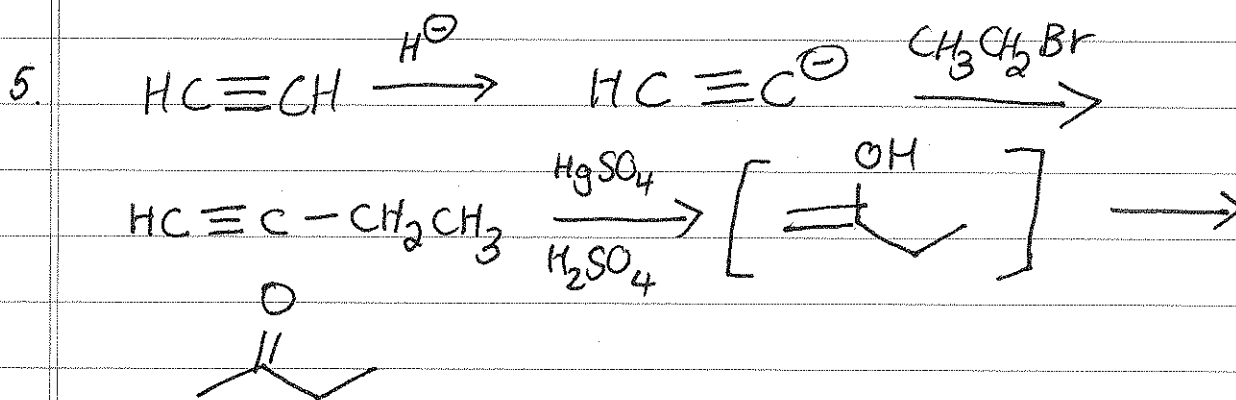 5. HC≡CH —H⊖→ HC≡C⊖ —CH₃CH₂Br→
HC≡C–CH₂CH₃ —HgSO₄ H₂SO₄→ [ OH ] →
O